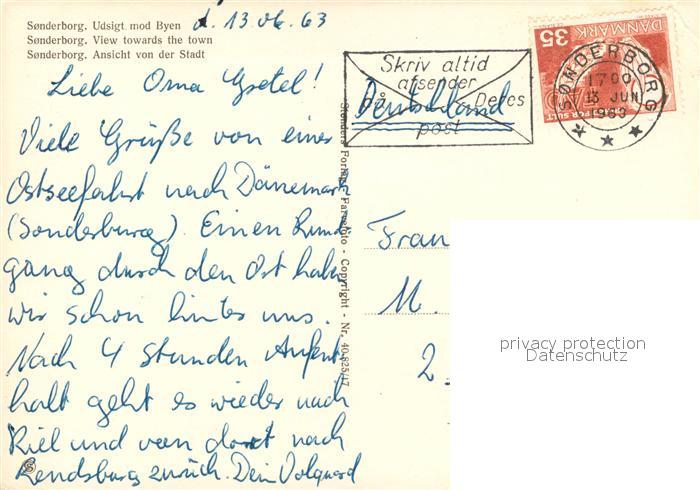 Sønderborg. Udsigt mod Byen
Sønderborg. View towards the town
Sønderborg. Ansicht von der Stadt
d. 13.06.63
Liebe Oma Gretel!
Viele Grüße von einer
Ostseefahrt nach Dänemark
(Sonderburg). Einen Rund
gang durch den Ort haben
wir schon hinter uns.
Nach 4 Stunden Aufent
halt geht es wieder nach
Kiel und von dort nach
Rendsburg zurück. Dein Volquard
Stenders Forlag. Farvefoto - Copyright - Nr. 40 825/17
Skriv altid
afsender
på Deres
post
Deutschland
DANMARK
35
SØNDERBORG
1700
13 JUN
1963
Frau
M.
2
privacy protection
Datenschutz